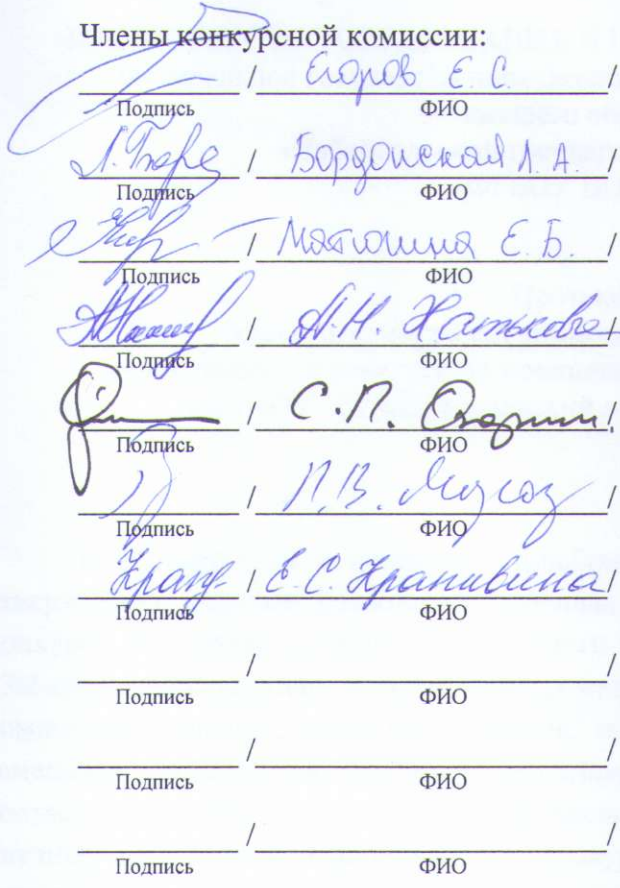 Члены конкурсной комиссии:
/ Егоров Е.С. /
Подпись ФИО
/ Бордонская Л.А. /
Подпись ФИО
/ Матюшина Е.Б. /
Подпись ФИО
/ А.Н. Хатькова /
Подпись ФИО
/ С.П. /
Подпись ФИО
/ П.В. /
Подпись ФИО
/ Е.С. Крапивина /
Подпись ФИО
/ /
Подпись ФИО
/ /
Подпись ФИО
/ /
Подпись ФИО